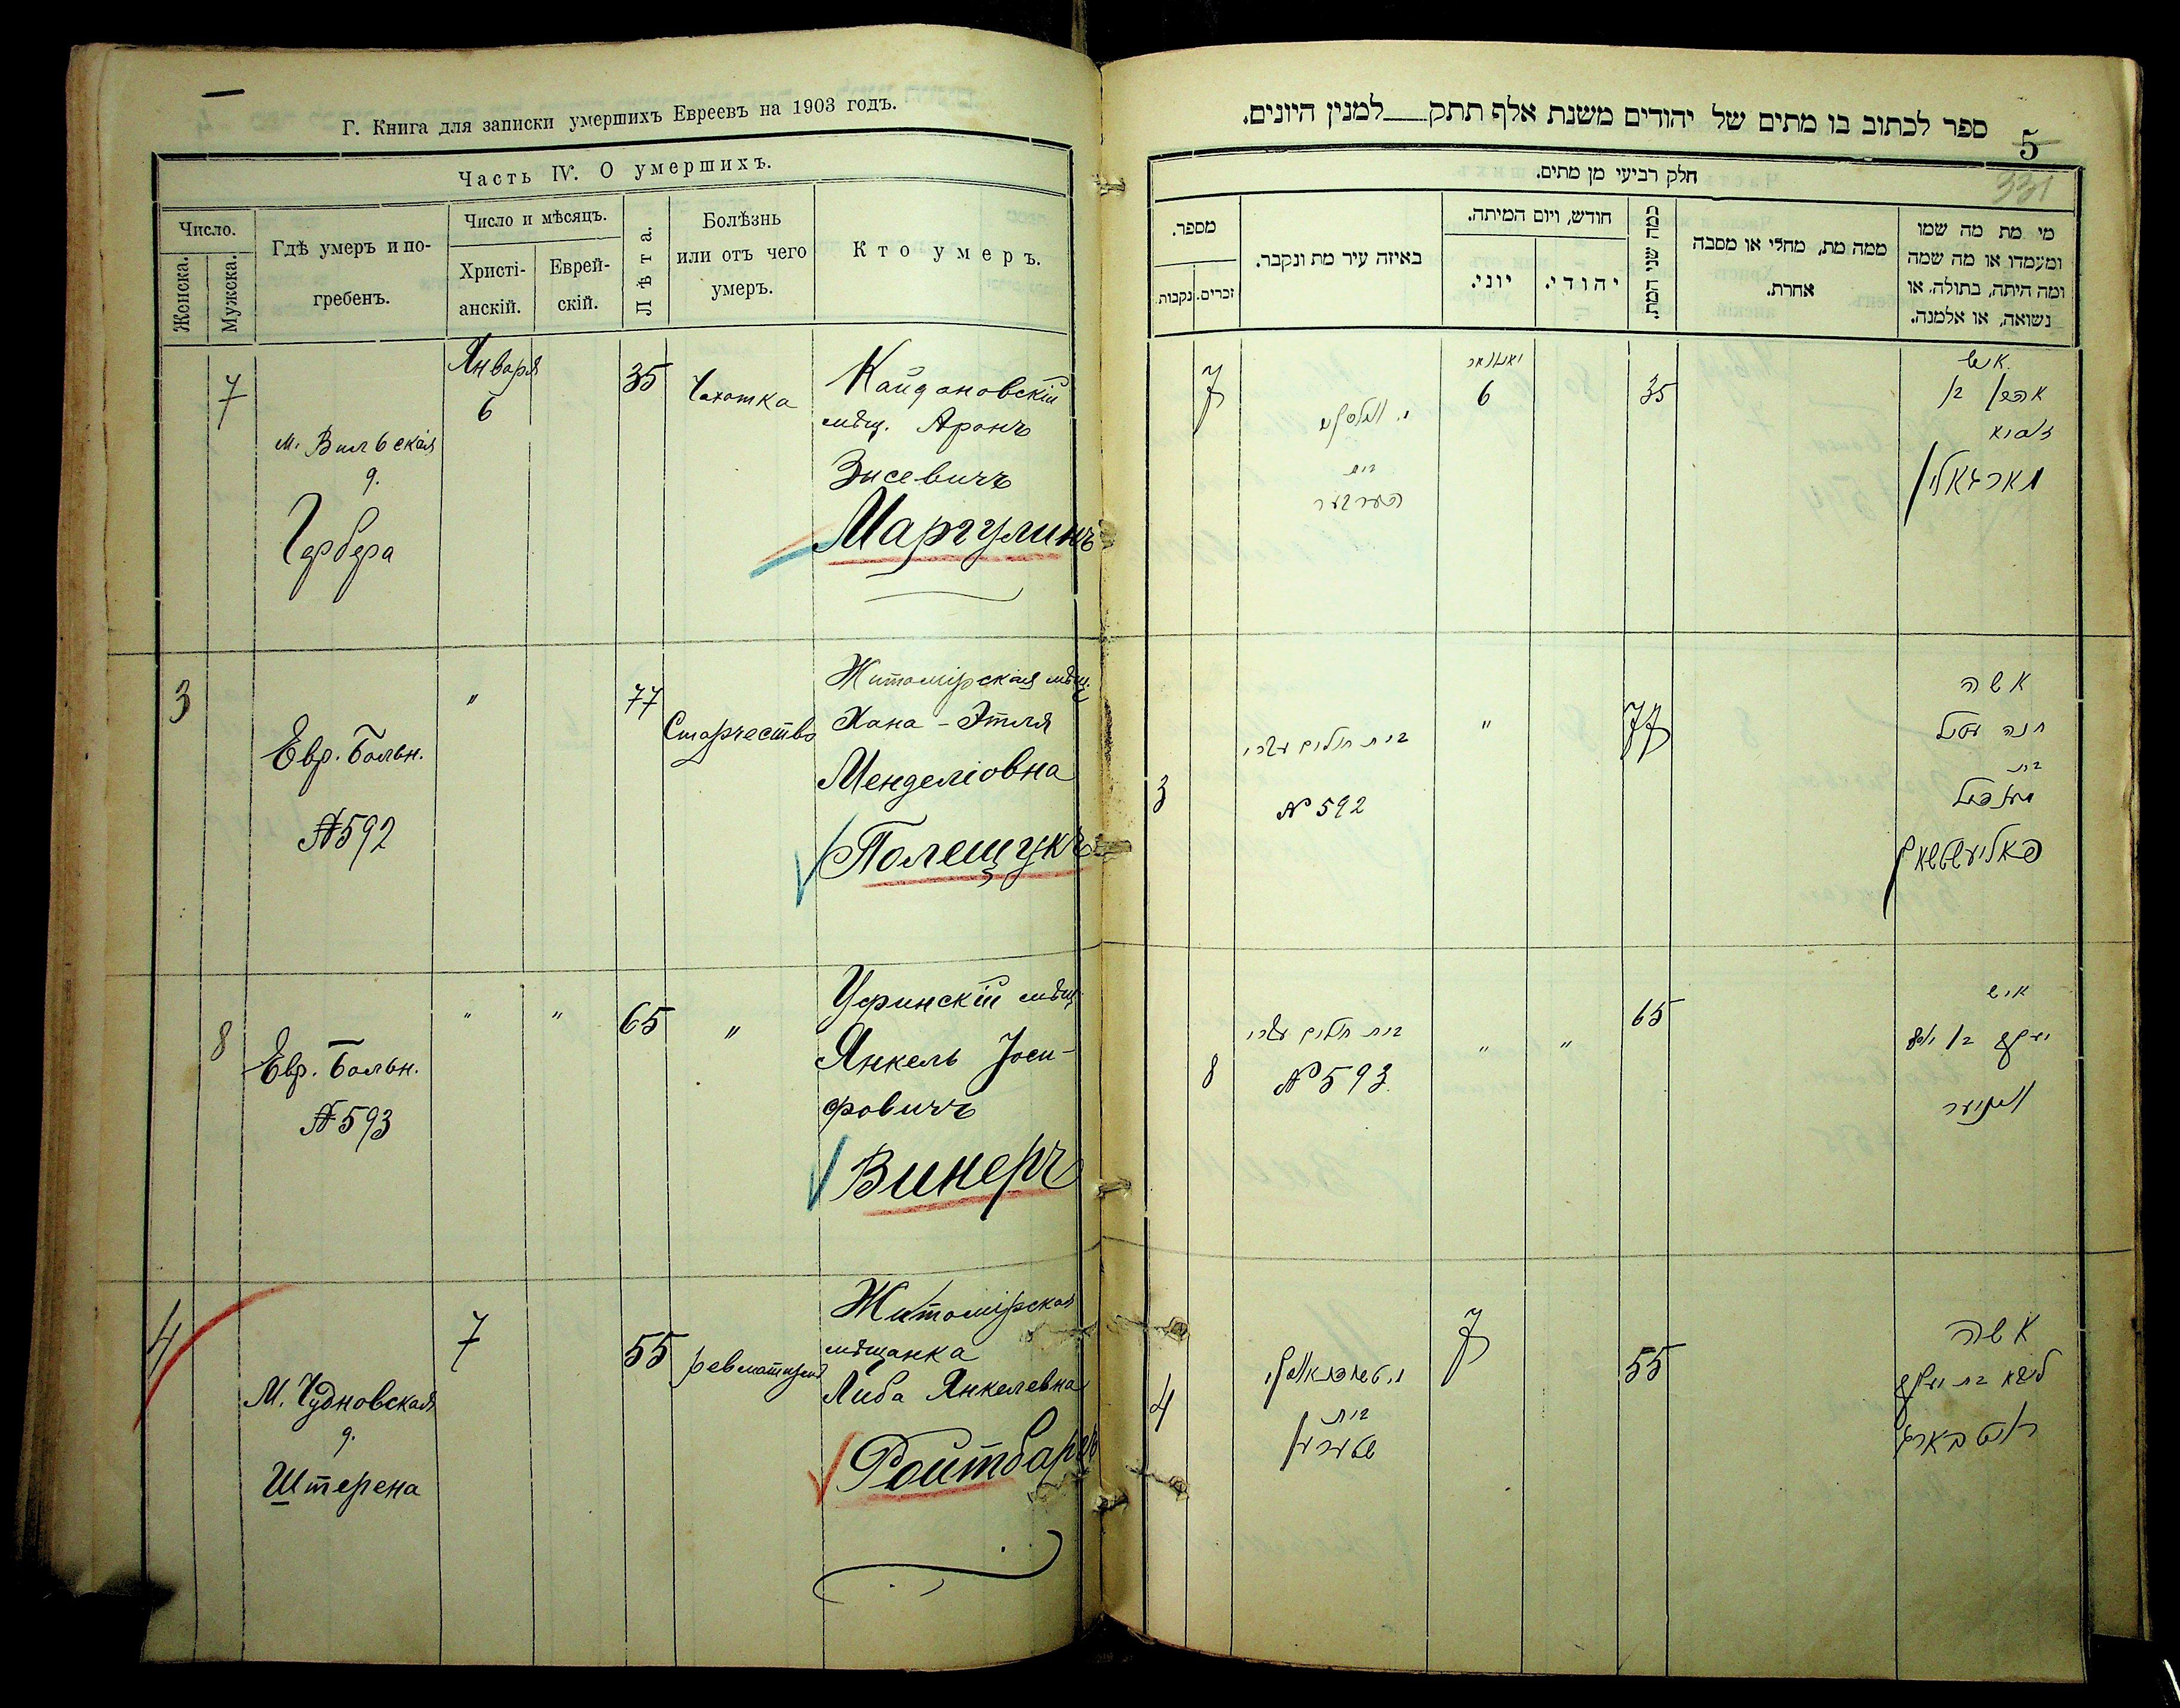 Г. Книга для записки умершихъ Евреевъ на 1903 годъ.
Часть IV. О умершихъ.
Число.
Женска.
Мужска.
Гдѣ умеръ и по-
гребенъ.
Число и мѣсяцъ.
Христі-
анскій.
Еврей-
скій.
Лѣта.
Болѣзнь
или отъ чего
умеръ.
Кто умеръ.
7
м. Вильская
д.
Гербера
Января
6
35
Чахотка
Кайдановскій
мѣщ. Аронъ
Зисевичъ
Маргулинъ
3
Евр. Больн.
№ 592
"
77
Старчество
Житомірская мѣщ.
Хана - Этля
Менделіовна
Полещукъ
8
Евр. Больн.
№ 593
"
"
65
"
мѣщ.
Янкель Іоси-
фовичъ
Винеръ
4
М. Чудновская
д.
Штерена
7
55
ревматизмъ
Житомірская
мѣщанка
Либа Янкелевна
Ройтбаргъ
ספר לכתוב בו מתים של יהודים משנת אלף תתק למנין היונים.
5
331
חלק רביעי מן מתים.
מי מת מה שמו
ומעמדו או מה שמה
ומה היתה, בתולה, או
נשואה, או אלמנה.
ממה מת, מחלי או מסבה
אחרת.
כמה שני המת.
חודש, ויום המיתה.
יהודי.
יוני.
באיזה עיר מת ונקבר.
מספר.
זכרים.
נקבות.
איש
אהרן בן
זיסיא
מארגאלין
35
יאנואר
6
בית
הערבער
7
אשה
חנה עטיל
בת
מענדיל
פאלישטשוק
77
"
בית חולים עברי
№ 592
3
איש
יעקב בן יוסף
ווינער
65
"
"
בית חולים עברי
№ 593
8
אשה
ליבא בת יעקב
רויטבארג
55
7
בית
שטערען
4